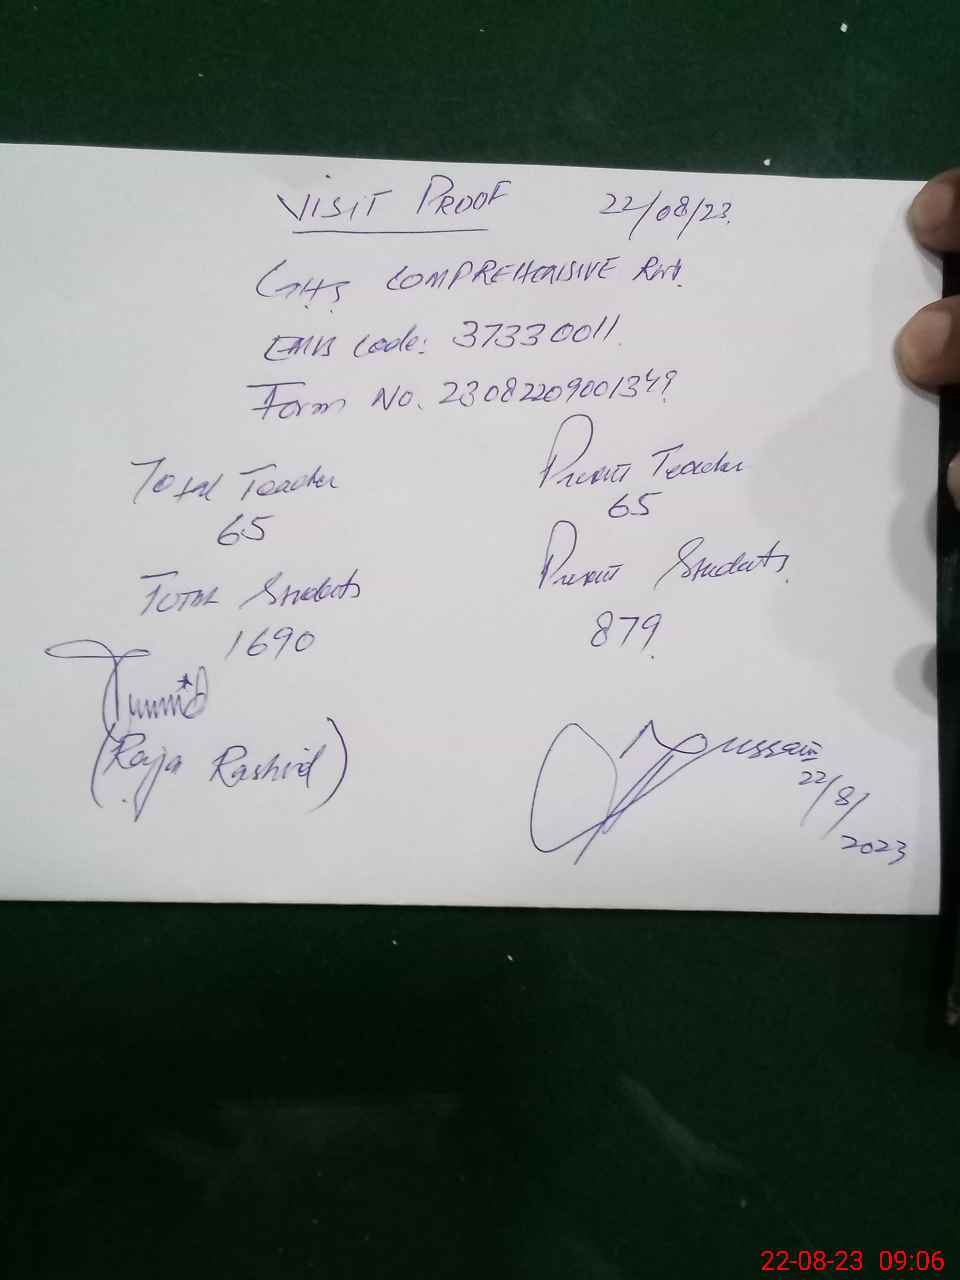 VISIT PROOF 22/08/23.
GHS COMPREHENSIVE Rwp.
EMIS Code: 37330011.
Form No. 23082209001349
Total Teacher Present Teacher
65 65
Total Students Present Students.
1690 879
(Raja Rashid)
Hussain
22/8/
2023
22-08-23 09:06